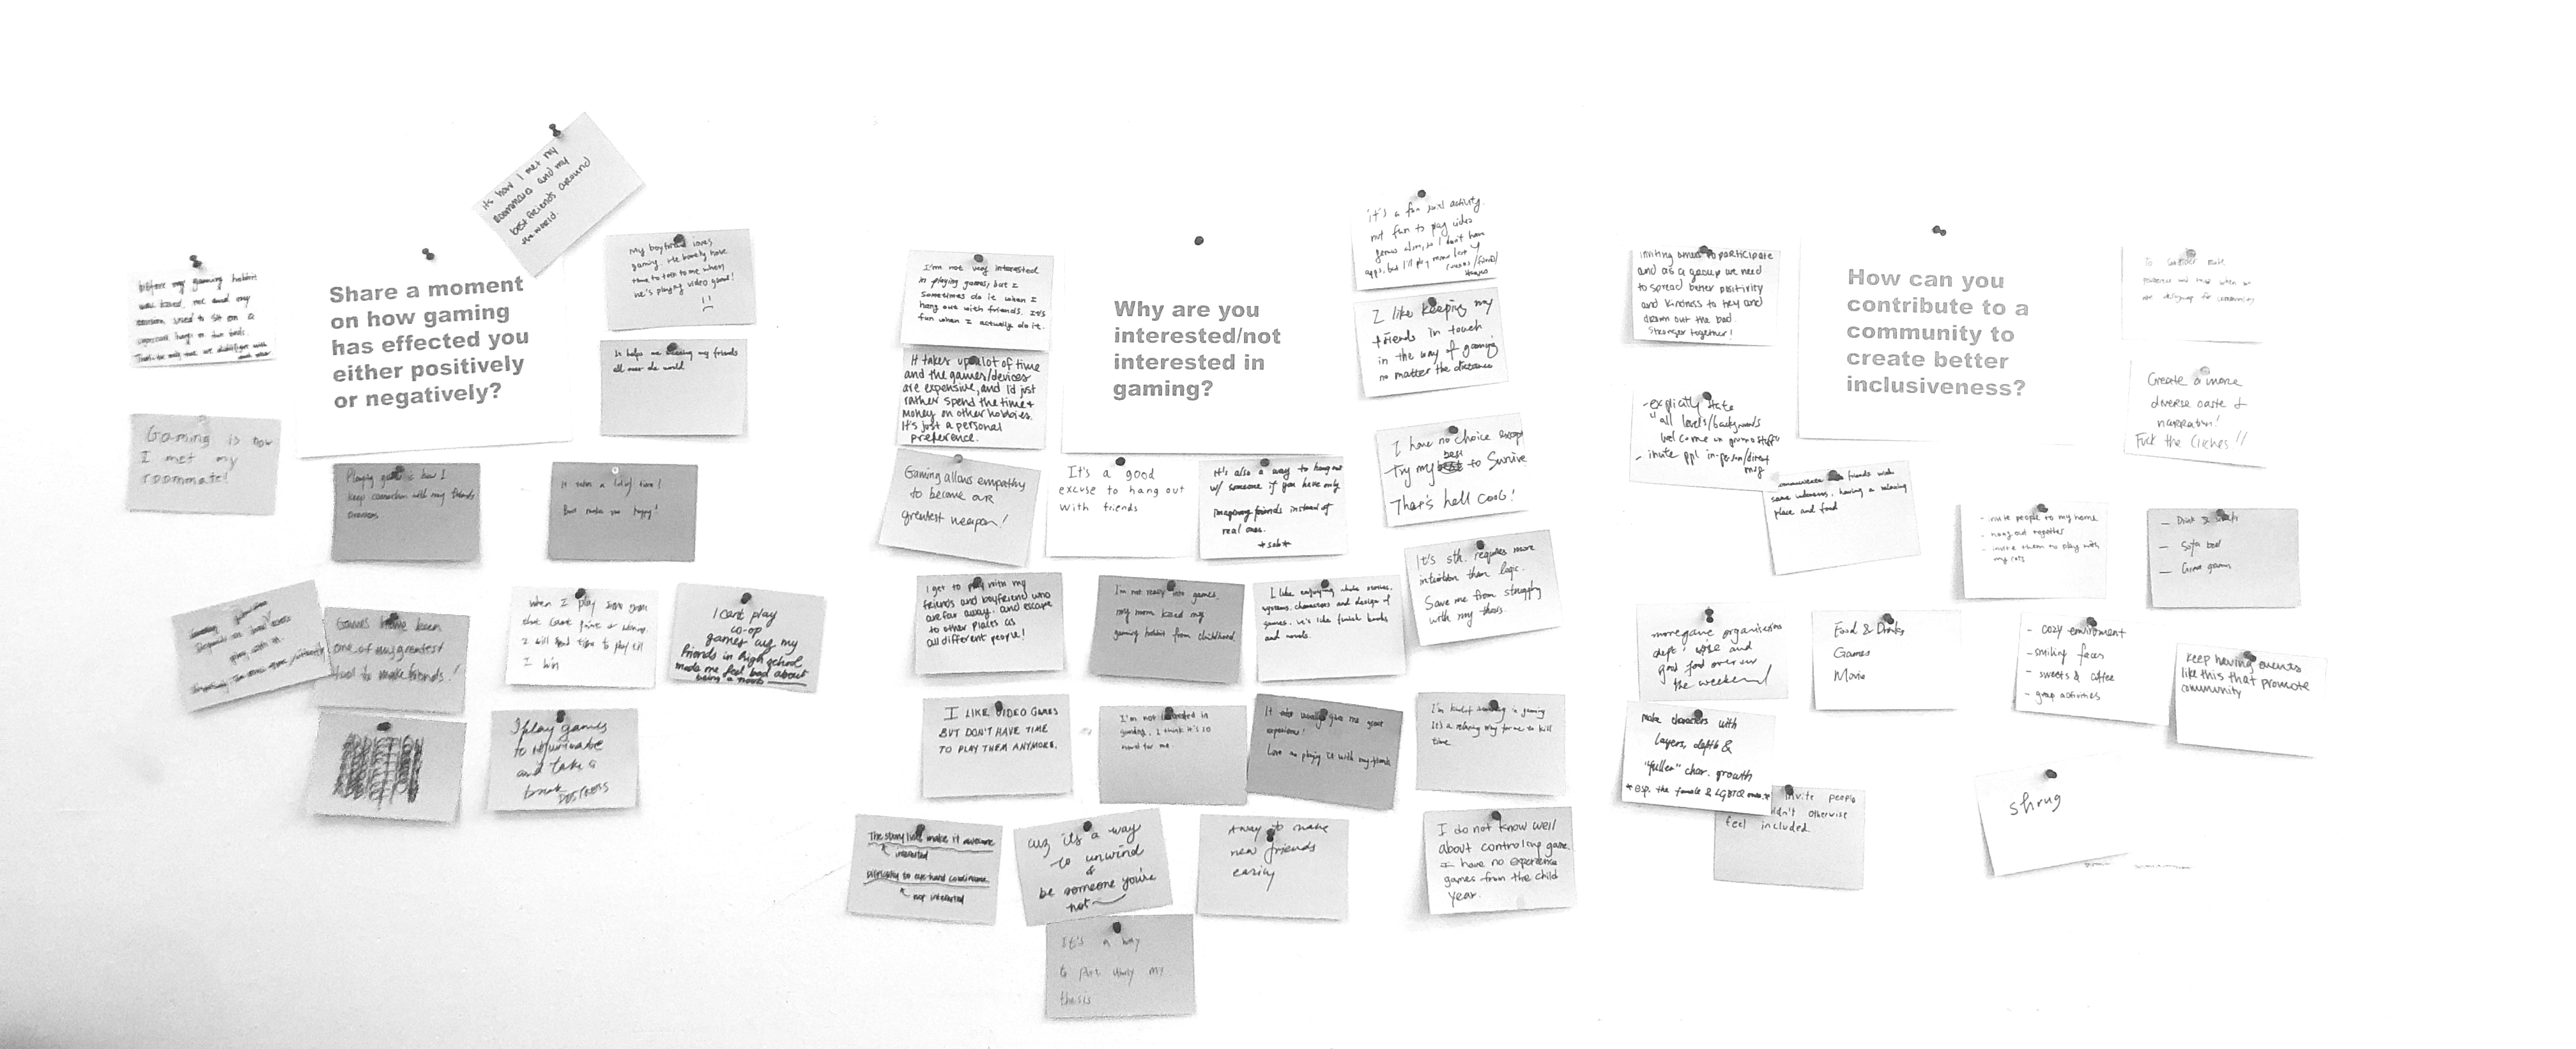 its how I met my
roommate and my
best friends around
the world.
Share a moment
on how gaming
has effected you
either positively
or negatively?
before my gaming
me and my
used to sit on a
My boyfriend loves
gaming. He barely have
time to talk to me when
he's playing video game!
It helps me my friends
all over the world
Gaming is how
I met my
roommate!
Playing game is how I
keep connection with my friends
overseas
It takes a lot of time!
But make me happy!
Games have been
one of my greatest
tool to make friends!
When I play
I will to play till
I win
I cant play
co-op
games cuz my
friends in high school
made me feel bad about
being a noob
I play games
to rejuvinate
and take a
break
Why are you
interested/not
interested in
gaming?
I'm not very interested
in playing games, but I
sometimes do it when I
hang out with friends. It's
fun when I actually do it.
It takes up a lot of time
and the games/devices
are expensive, and I'd just
rather spend the time +
money on other hobbies.
It's just a personal
preference.
it's a fun social activity.
not fun to play video
games alone, so I don't have
apps, but I'll play
I like keeping my
friends in touch
in the way of gaming
no matter the distance
I have no choice except
Try my best to survive
That's hell cool!
Gaming allows empathy
to become our
greatest weapon!
It's a good
excuse to hang out
with friends
It's also a way to hang out
w/ someone if you have only
imaginary friends instead of
real ones.
*sob*
It's sth. requires more
intuition than logic.
Save me from struggling
with my thesis.
I get to play with my
friends and boyfriend who
are far away. and escape
to other places as
all different people!
I'm not really into games.
my mom killed my
gaming hobbit from childhood.
I like enjoying whole stories,
systems, characters and design of
games. It's like
and novels.
I LIKE VIDEO GAMES
BUT DON'T HAVE TIME
TO PLAY THEM ANYMORE.
I'm not interested in
gaming. I think it's so
hard for me.
It give me great
experience!
Love playing it with my friends
I'm kind of in gaming
It's a relaxing way for me to kill
time
The story line make it awesome
interested
difficulty to eye hand coordinate
not interested
cuz it's a way
to unwind
&
be someone you're
not
A way to make
new friends
easily
I do not know well
about controling game.
I have no experience
games from the child
year.
It's a way
to put away my
thesis
How can you
contribute to a
community to
create better
inclusiveness?
inviting others to participate
and as a group we need
to spread better positivity
and kindness to they and
drown out the bad
Stronger together!
To consider more
when we
are designing for community
- explicitly state
"all levels/backgrounds
welcome" in promo stuff
- invite ppl in-person/direct
msg
Create a more
diverse caste &
narration!
Fuck the Cliches!!
communicate friends with
same interests, having a relaxing
place and food
- invite people to my home
- hang out together
- invite them to play with
my cats
- Drink &
- Sofa bed
- Game games
more game organisations
dept. wise and
good food over
the weekend
Food & Drinks
Games
Movie
- cozy enviroment
- smiling faces
- sweets & coffee
- group activities
keep having events
like this that promote
community
make characters with
layers, depth &
"fuller" char. growth
* esp. the female & LGBTQ ones *
invite people
otherwise
feel included.
shrug